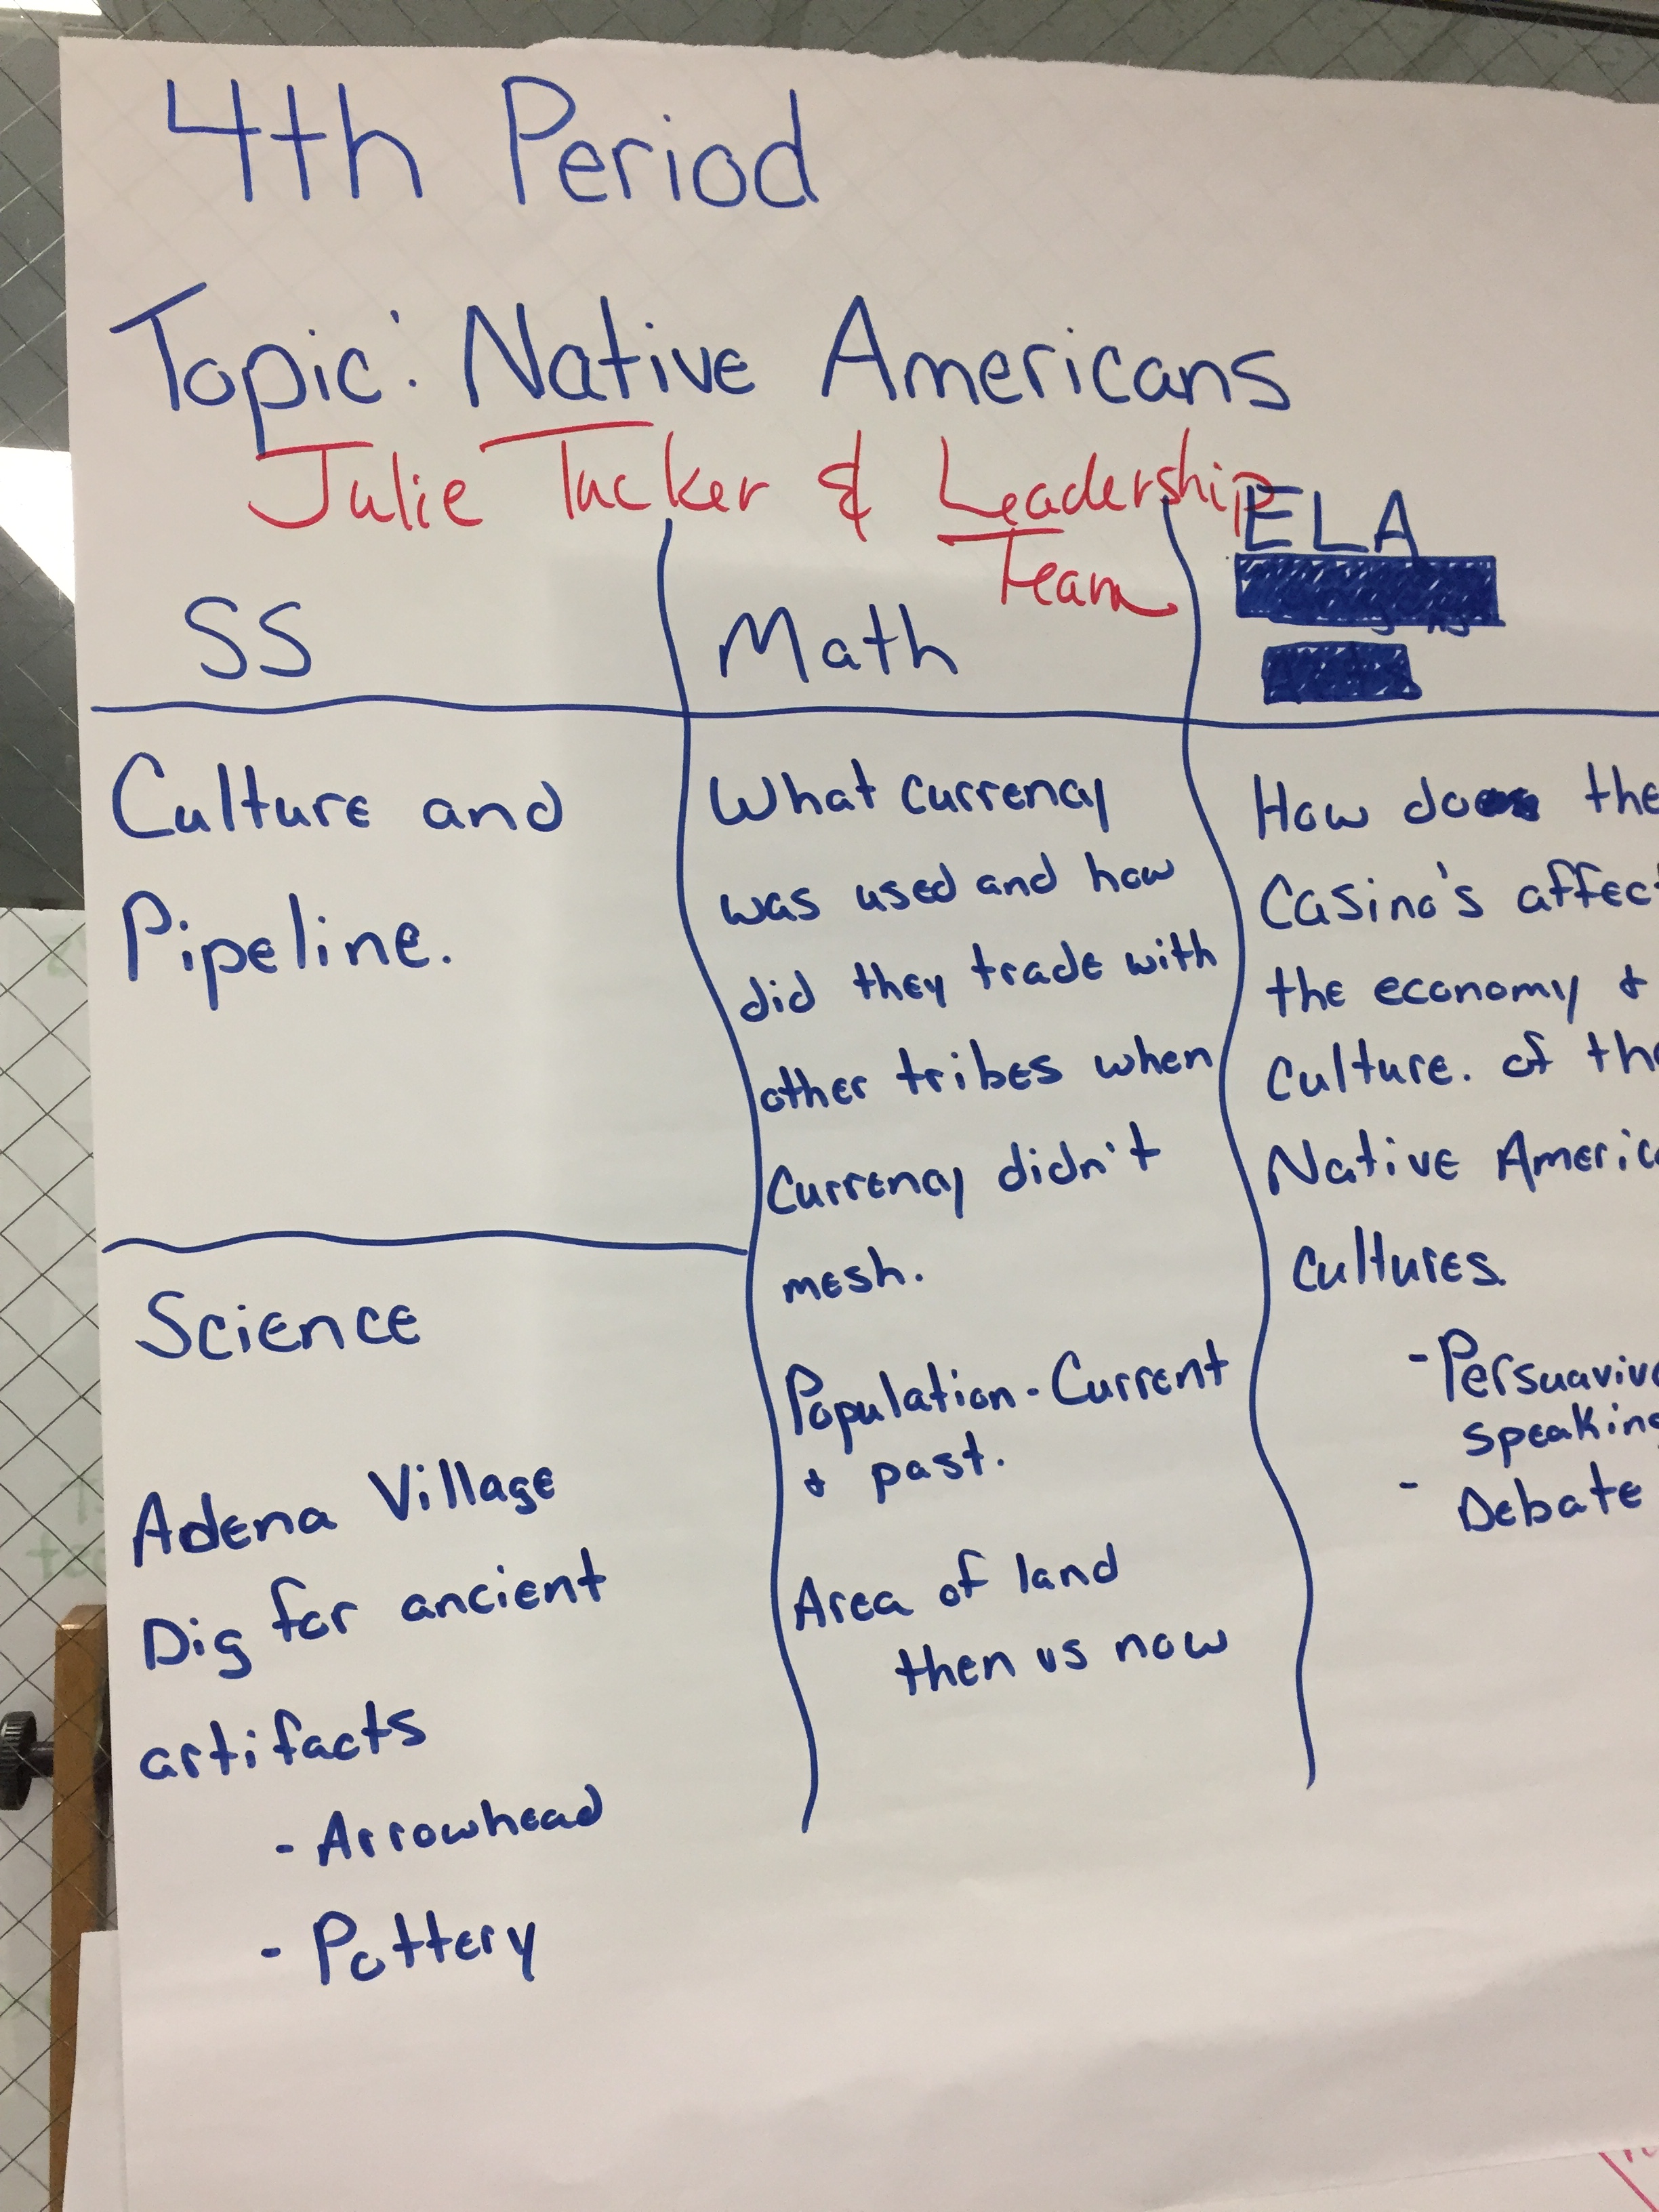 4th Period
Topic: Native Americans
Julie Tucker & Leadership
Team
SS
Culture and
Pipeline.
Science
Adena Village
Dig for ancient
artifacts
- Arrowhead
- Pottery
Math
What currency
was used and how
did they trade with
other tribes when
Currency didn't
mesh.
Population - Current
+ past.
Area of land
then vs now
ELA
How do the
Casino's affect
the economy +
Culture. of the
Native
cultures.
- 
speaking
- Debate